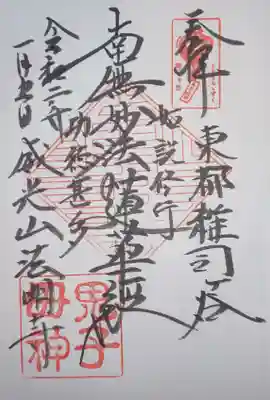 奉拝
東都雑司ヶ谷
如説修行
南無妙法蓮華経
功徳甚多
令和二年
一月
威光山法明寺
鬼子
母神